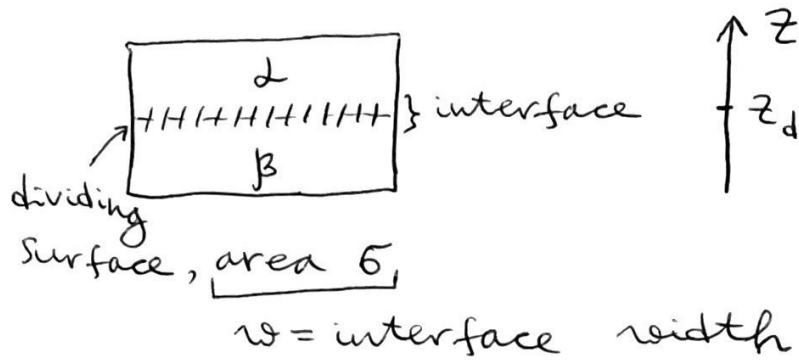 Z
α
} interface
Z_d
β
dividing
surface, area σ,
w = interface width